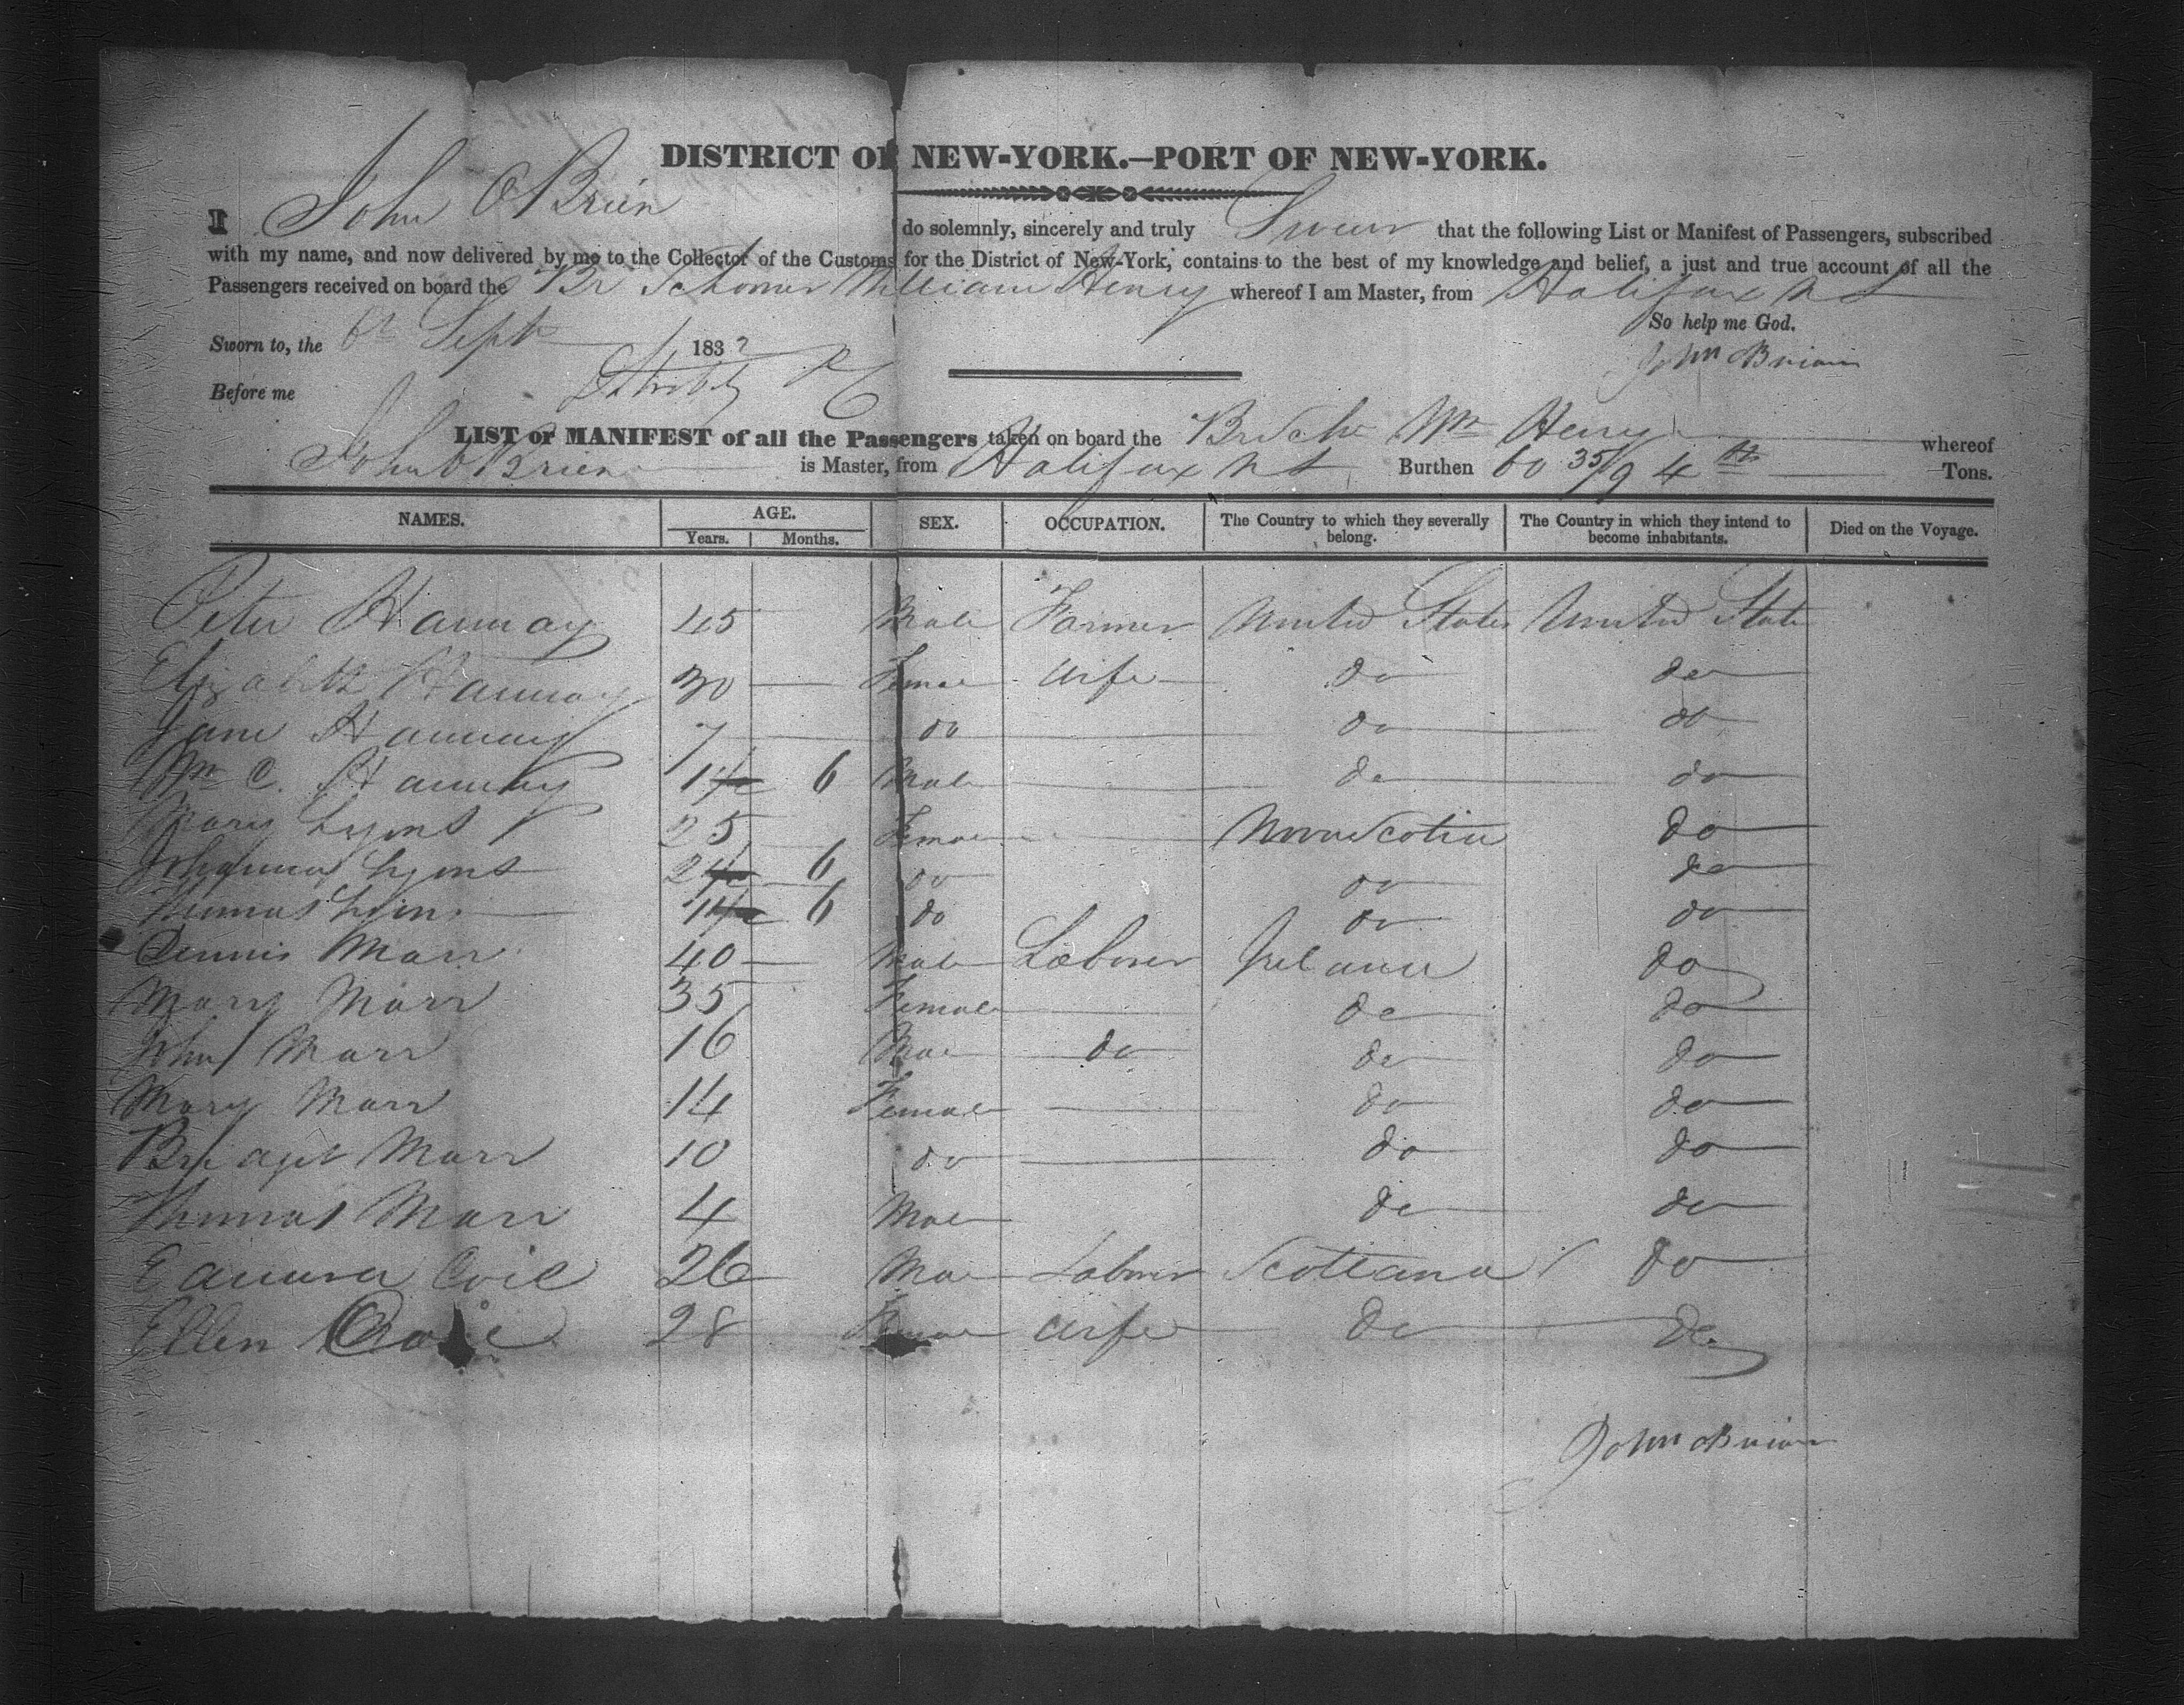 DISTRICT OF NEW-YORK.—PORT OF NEW-YORK.
I John OBrien do solemnly, sincerely and truly Swear that the following List or Manifest of Passengers, subscribed
with my name, and now delivered by me to the Collector of the Customs for the District of New-York, contains to the best of my knowledge and belief, a just and true account of all the
Passengers received on board the Br Schoner William Henry whereof I am Master, from Halifax N S
So help me God.
Sworn to, the 6th Sept 183
John OBrian
Before me
LIST or MANIFEST of all the Passengers taken on board the Br Schr Wm Henry whereof
John OBrien is Master, from Halifax N S Burthen 60 35/94 ths Tons.
NAMES. AGE. Years. Months. SEX. OCCUPATION. The Country to which they severally belong. The Country in which they intend to become inhabitants. Died on the Voyage.
Peter Hannay 45 Male Farmer United States United State
Elizabeth Hannay 30 Femae Wife do do
Jane Hannay 7 do do do
Wm C. Hannay 1 6 Male do do
Mary Lyons 25 Femae Nova Scotia do
Johanna Lyons 2 6 do do do
Thomas Lyons 1 6 do do do
Dennis Marr 40 Male Laborer Ireland do
Mary Marr 35 Female do do
John Marr 16 Mae do do do
Mary Marr 14 Female do do
Bridget Marr 10 do do do
Thomas Marr 4 Mae do do
Edmund Coil 26 Mae Laborer Scotland do
Ellen 28 Femae Wife do do
John OBrian